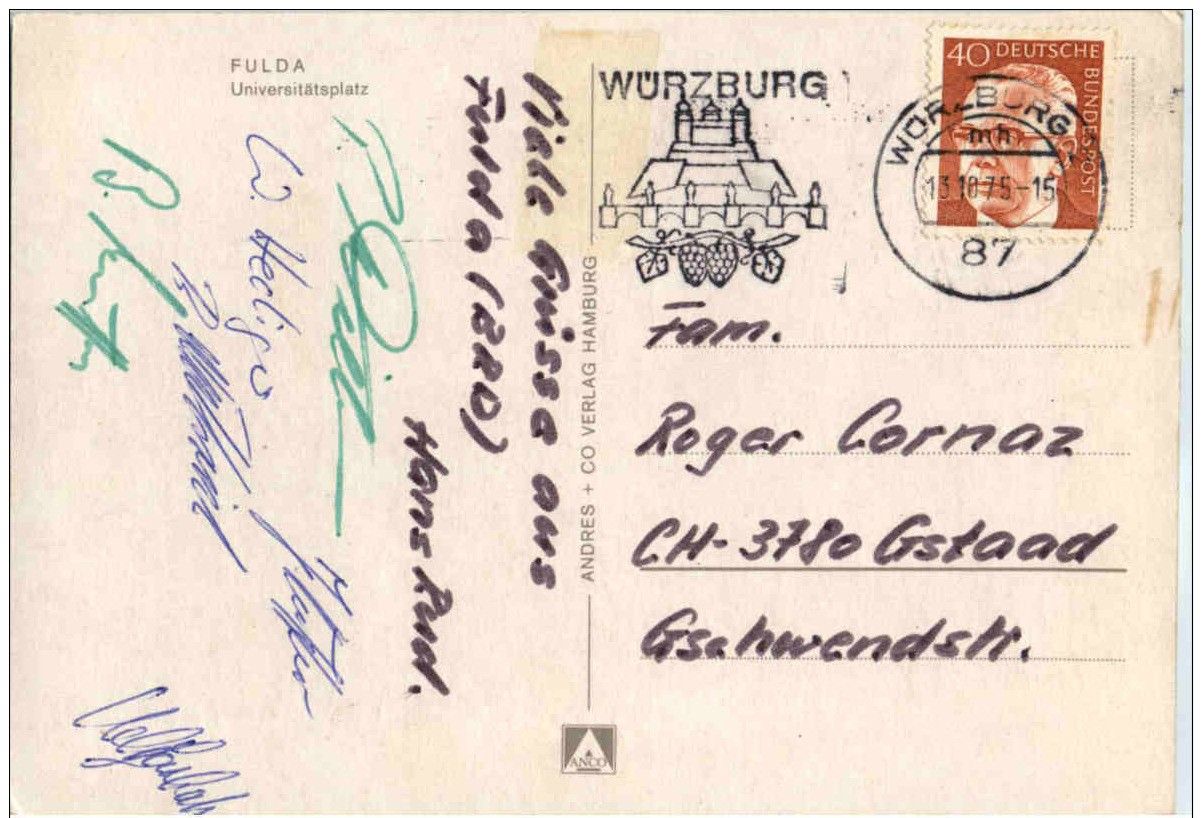 FULDA
Universitätsplatz
Viele Grüsse aus
Fulda (BRD)
Hans Rud.
ANDRES + CO VERLAG HAMBURG
ANCO
WÜRZBURG
40 DEUTSCHE BUNDESPOST
WÜRZBURG
mh
13.10.75-15
87
Fam.
Roger Cornaz
CH-3780 Gstaad
Gschwendstr.